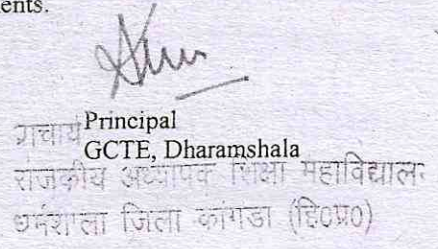 ents.
प्राचार्य Principal
GCTE, Dharamshala
राजकीय अध्यापक शिक्षा महाविद्यालय
धर्मशाला जिला कांगडा (हि०प्र०)